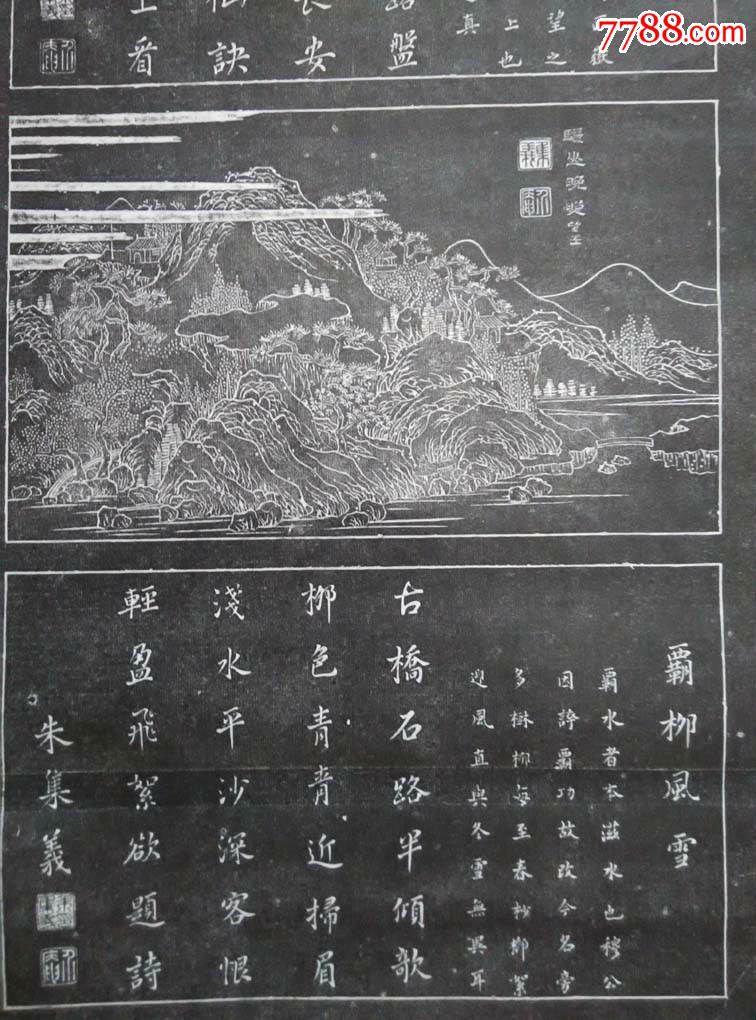 7788.com
嶽
望之
上也
真
露盤
長安
仙訣
上看
晚
覇柳風雪
覇水者本滋水也穆公
因誇覇功故改今名旁
多樹柳每至春杪柳絮
迎風直與冬雪無異耳
古橋石路半傾欹
柳色青青近掃眉
淺水平沙深客恨
輕盈飛絮欲題詩
朱集義